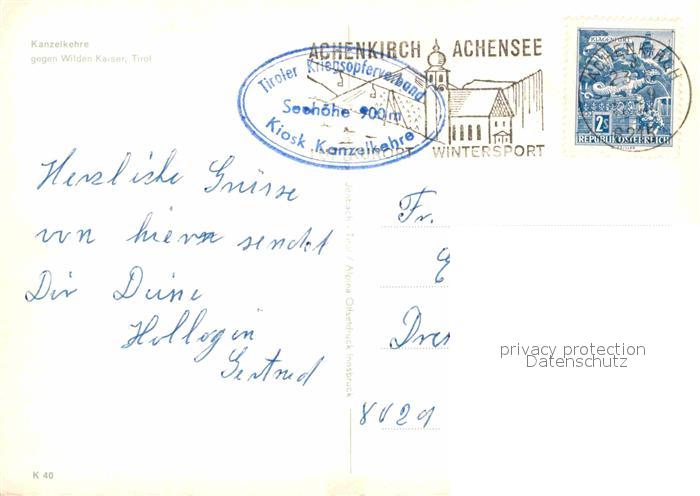 Kanzelkehre
gegen Wilden Kaiser, Tirol
ACHENKIRCH ACHENSEE
WINTERSPORT
Tiroler Kriegsopferverband
Seehöhe 900m
Kiosk Kanzelkehre
KLAGENFURT
2S
REPUBLIK ÖSTERREICH
Herzliche Grüsse
von hier sendet
Dir Deine
Kollegin
Gertrud
Jenbach - Tirol / Alpina Offsetdruck Innsbruck
Fr.
Dres
8029
privacy protection
Datenschutz
K 40